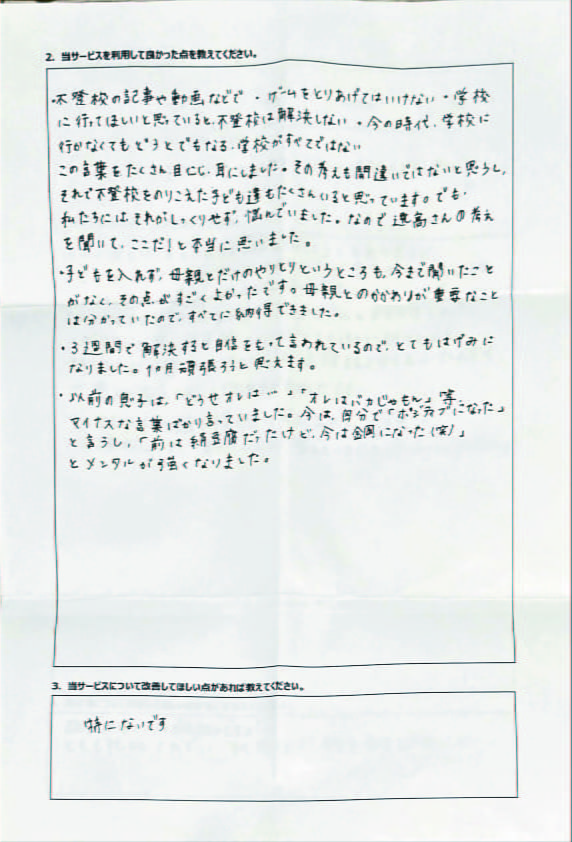 2. 当サービスを利用して良かった点を教えてください。
・不登校の記事や動画などで ・ゲームをとりあげてはいけない ・学校
に行ってほしいと思っていると、不登校は解決しない ・今の時代、学校に
行かなくてもどうとでもなる、学校がすべてではない
この言葉をたくさん目にし、耳にしました。その考えも間違いではないと思うし、
それで不登校をのりこえた子ども達もたくさんいると思っています。でも、
私たちにはそれがしっくりせず、悩んでいました。なので逸高さんの考え
を聞いて、ここだ！と本当に思いました。
・子どもを入れず、母親とだけのやりとりというところも、今まで聞いたこと
がなく、その点がすごくよかったです。母親とのかかわりが重要なこと
は分かっていたので、すべてに納得できました。
・3週間で解決すると自信をもって言われているので、とてもはげみに
なりました。1ヵ月頑張ろうと思えます。
・以前の息子は、「どうせオレは…」「オレはバカじゃもん」等、
マイナスな言葉ばかり言っていました。今は、自分で「ポジティブになった」
と言うし、「前は絹豆腐だったけど、今は鋼になった(笑)」
とメンタルが強くなりました。
3. 当サービスについて改善してほしい点があれば教えてください。
特にないです